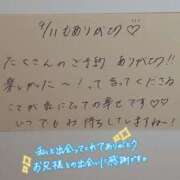 9/11もありがとう♡
たくさんのご予約 ありがとう!!
楽しかた〜!って言ってくださる
ことが 私にとっての幸せです♡♡
いつでもお待ちしていますねー!
私と出会ってくれてありがとう
お兄様との出会いに感謝です。